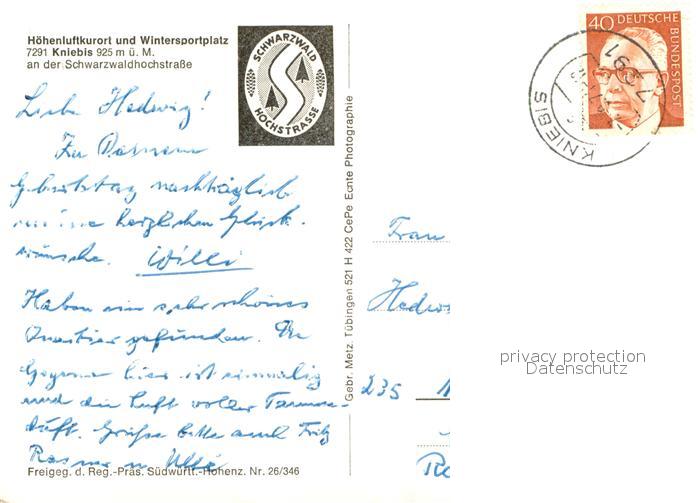 Höhenluftkurort und Wintersportplatz
7291 Kniebis 925 m ü. M.
an der Schwarzwaldhochstraße
SCHWARZWALD
HOCHSTRASSE
40 DEUTSCHE BUNDESPOST
7291
KNIEBIS
Liebe Hedwig!
Zu Deinem
Geburtstag nachträglich
meine herzlichen Glück-
wünsche. Willi
Haben ein sehr schönes
Quartier gefunden. Die
Gegend hier ist einmalig
und die Luft voller Tannen-
duft. Grüße bitte auch Fritz
Freigeg. d. Reg.-Präs. Südwürtt.-Hohenz. Nr. 26/346
Gebr. Metz, Tübingen 521 H 422 CePe Echte Photographie
Frau
Hedwig
235
privacy protection
Datenschutz